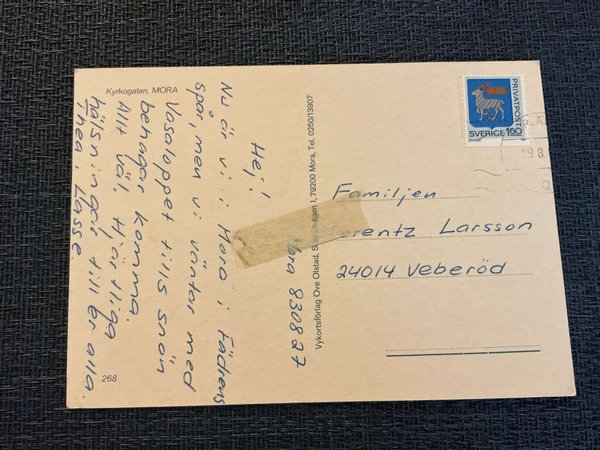 Kyrkogatan, MORA
Hej!
Nu är vi i Mora i fädens
spår, men vi väntar med
Vasaloppet tills snön
behagar komma.
Allt väl. Hjärtliga
hälsningar till er alla.
Thea, Lasse
Mora 830827
Vykortsförlag Ove Olstad, 1, 79200 Mora, Tel. 0250/13907
PRIVATPOST
SVERIGE 160
29.8
Familjen
Lorentz Larsson
24014 Veberöd
268